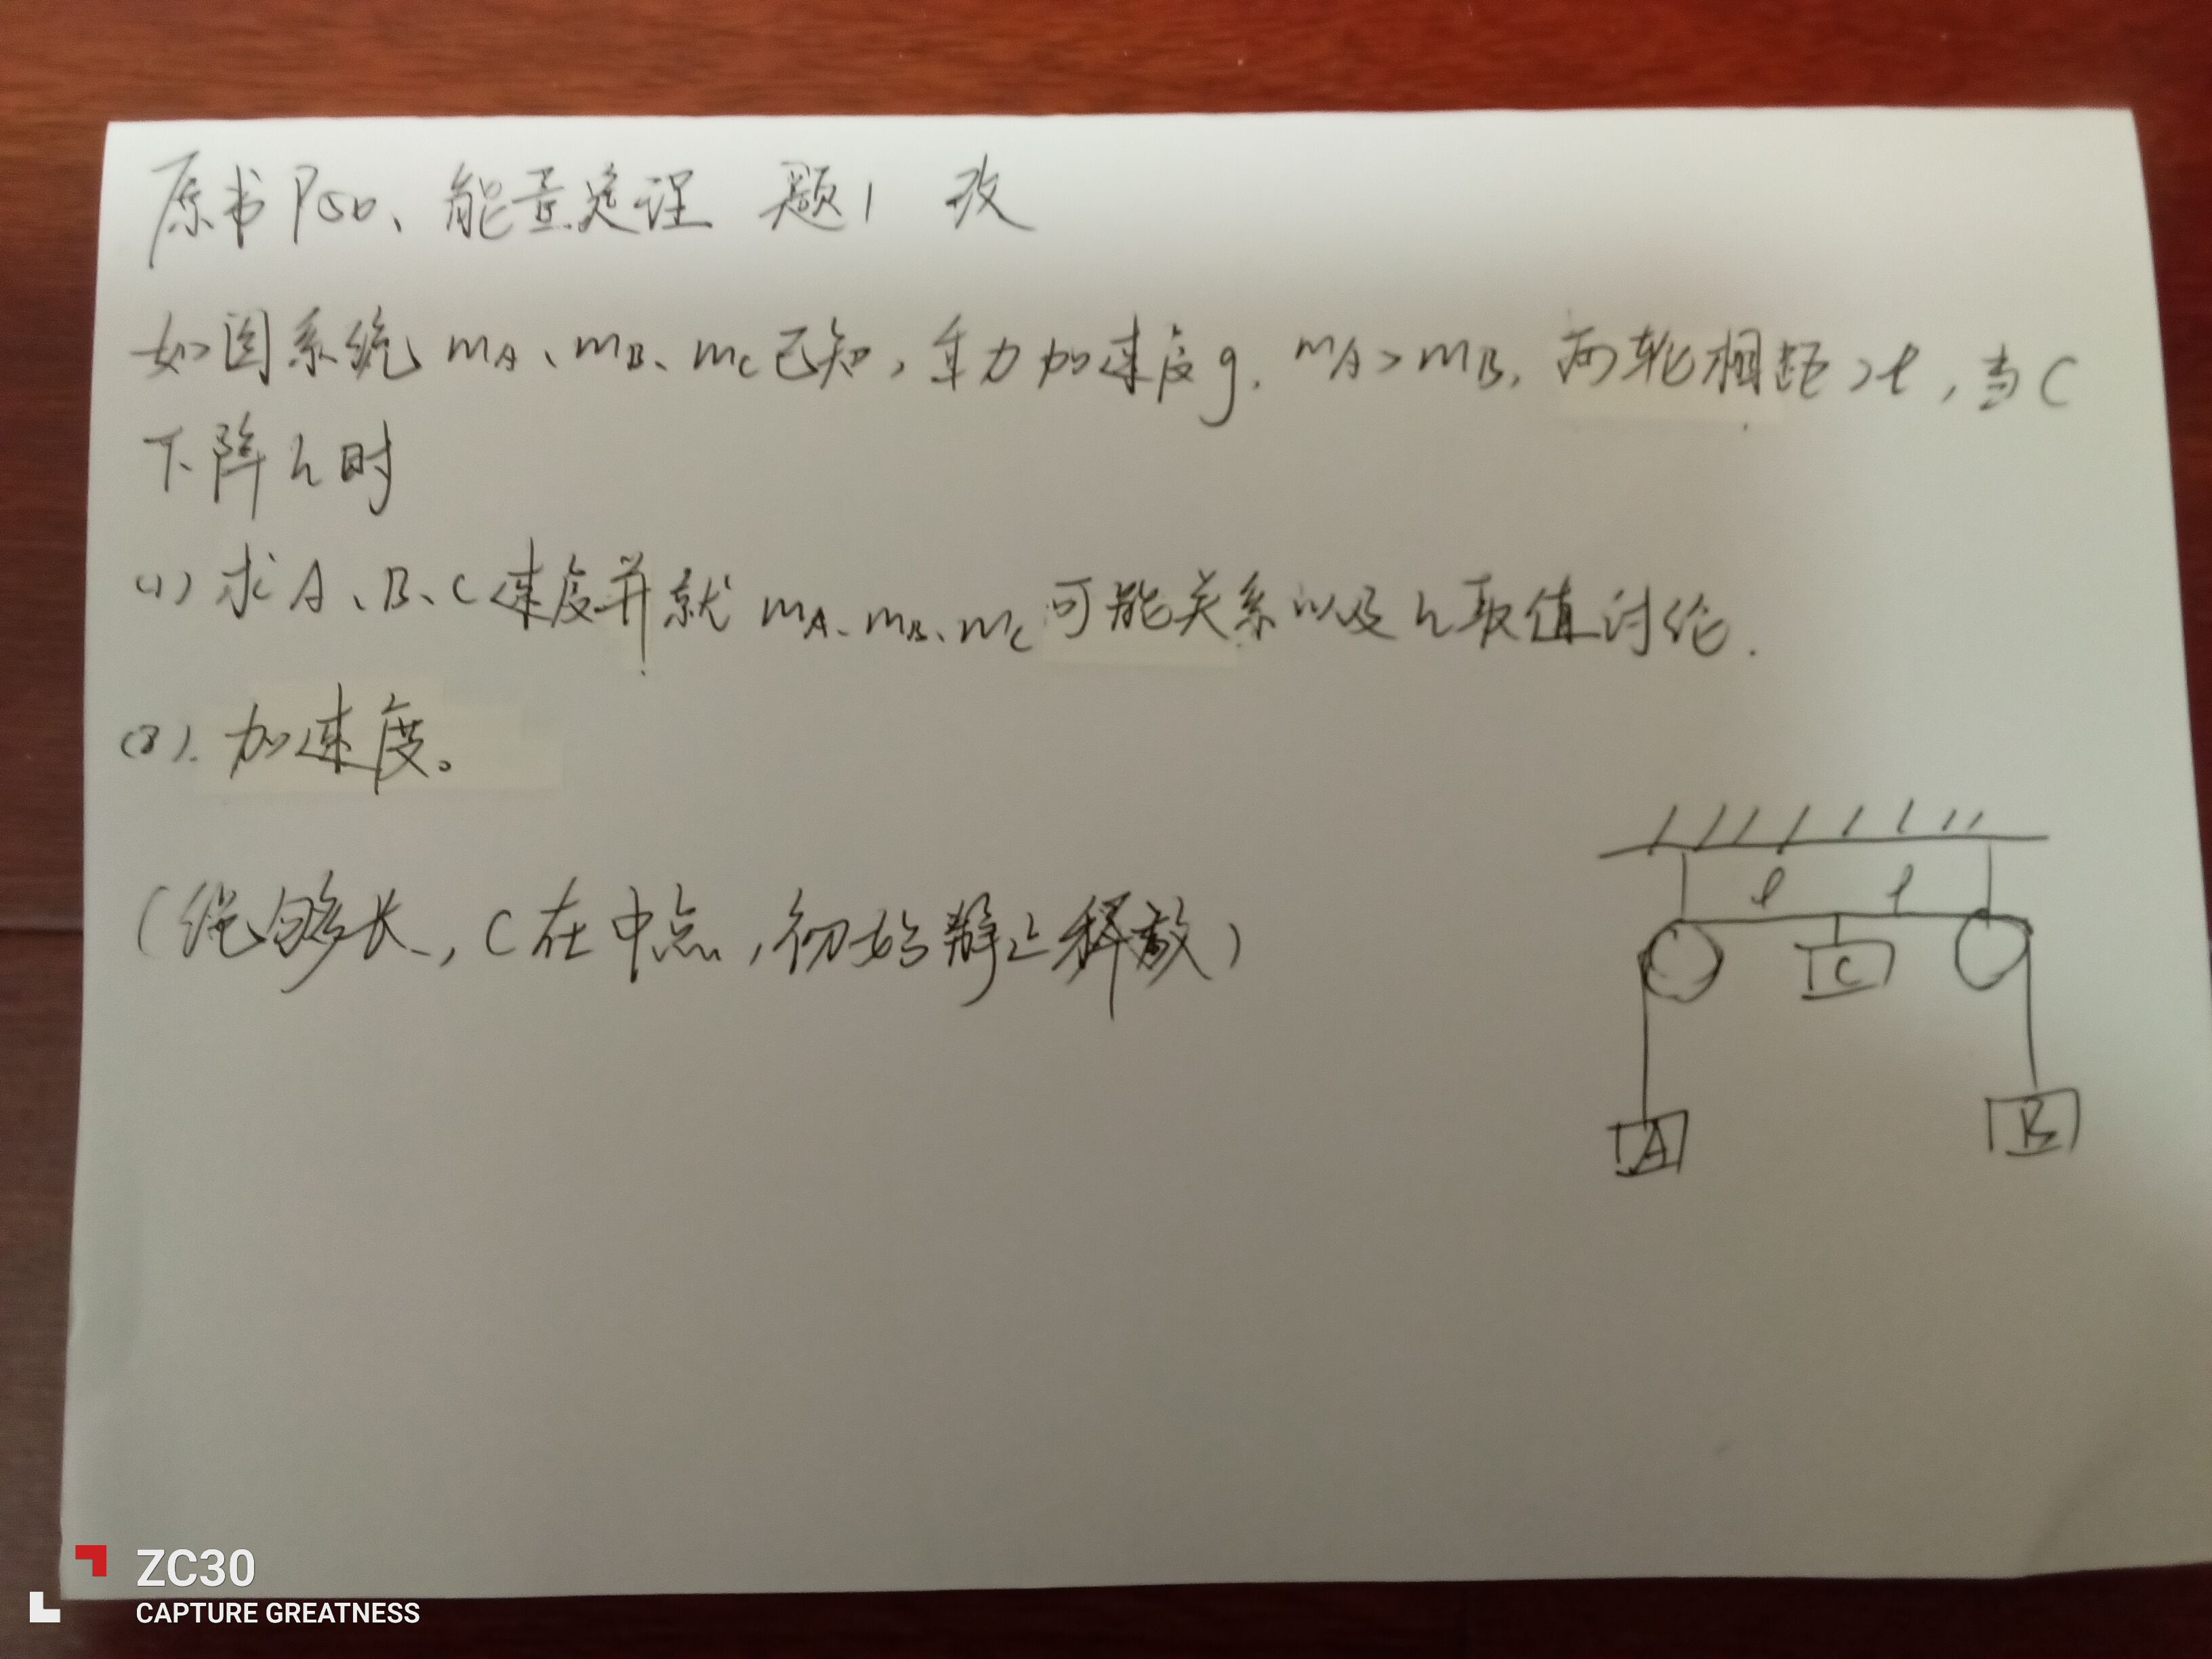 原书P50、能量定理 题1 改
如图系统 mA、mB、mC已知,重力加速度g. mA>mB, 两轮相距2l,当C
下降h时
(1) 求A、B、C速度并就 mA、mB、mC可能关系以及h取值讨论.
(2). 加速度。
(绳够长,C在中点,初始静止释放)
l l
C
A
B
ZC30
CAPTURE GREATNESS